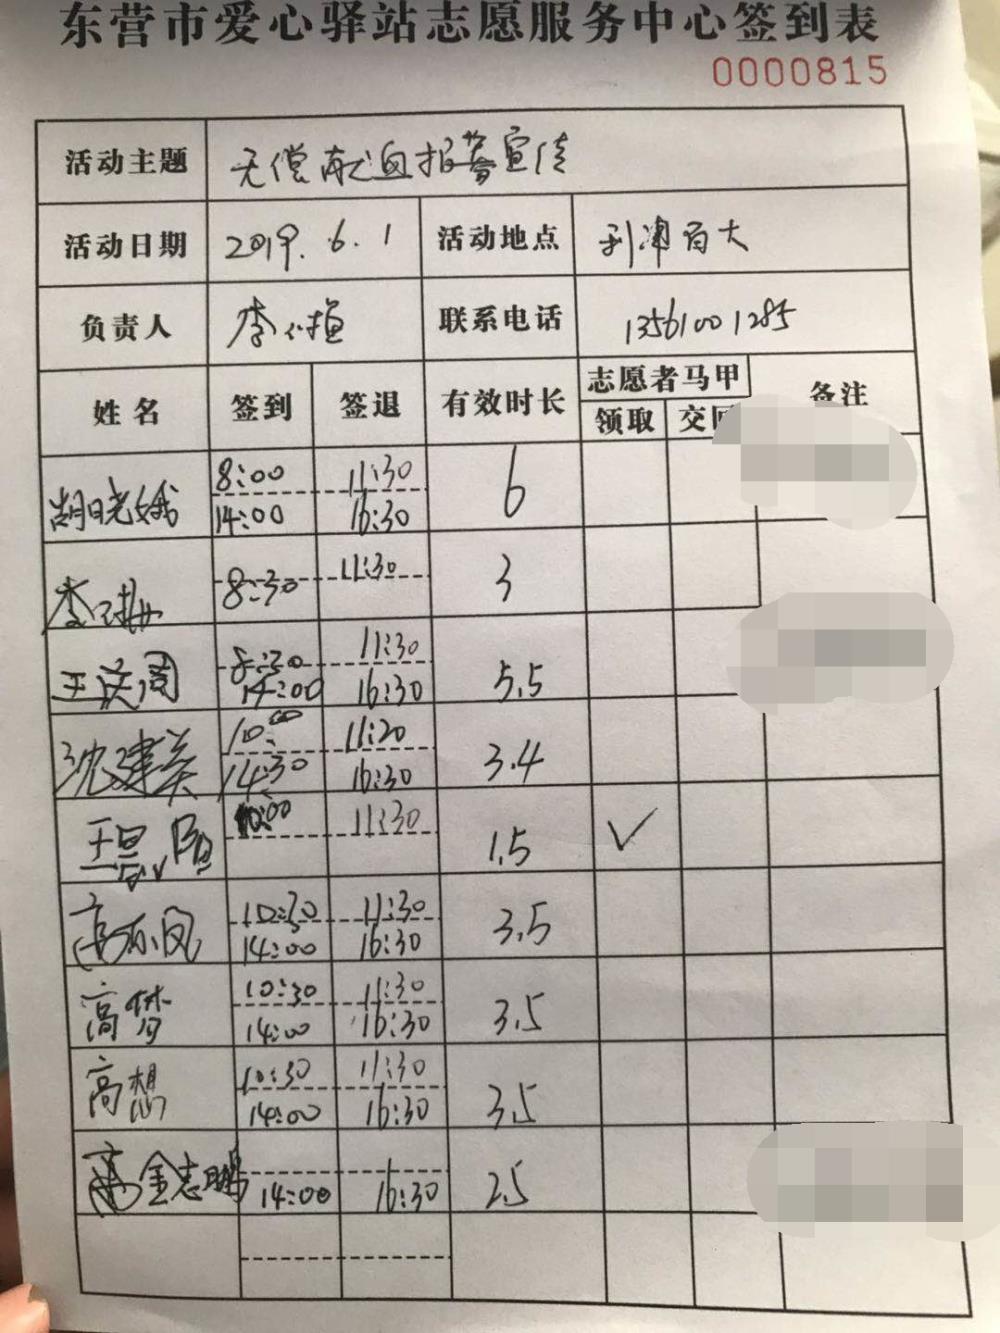 东营市爱心驿站志愿服务中心签到表
0000815
活动主题 无偿献血招募宣传
活动日期 2019.6.1 活动地点 利津百大
负责人 李小植 联系电话 13561001285
姓名 签到 签退 有效时长 志愿者马甲 备注
领取
胡晓娥 8:00 11:30 6
14:00 16:30
李 8:30 11:30 3
王洪周 8:30 11:30 5.5
14:00 16:30
沈建英 10:00 11:20 3.4
14:30 16:30
王 10:00 11:30 1.5 ✓
高 凤 10:30 11:30 3.5
14:00 16:30
高梦 10:30 11:30 3.5
14:00 16:30
高想 10:30 11:30 3.5
14:00 16:30
金志鹏 14:00 16:30 2.5